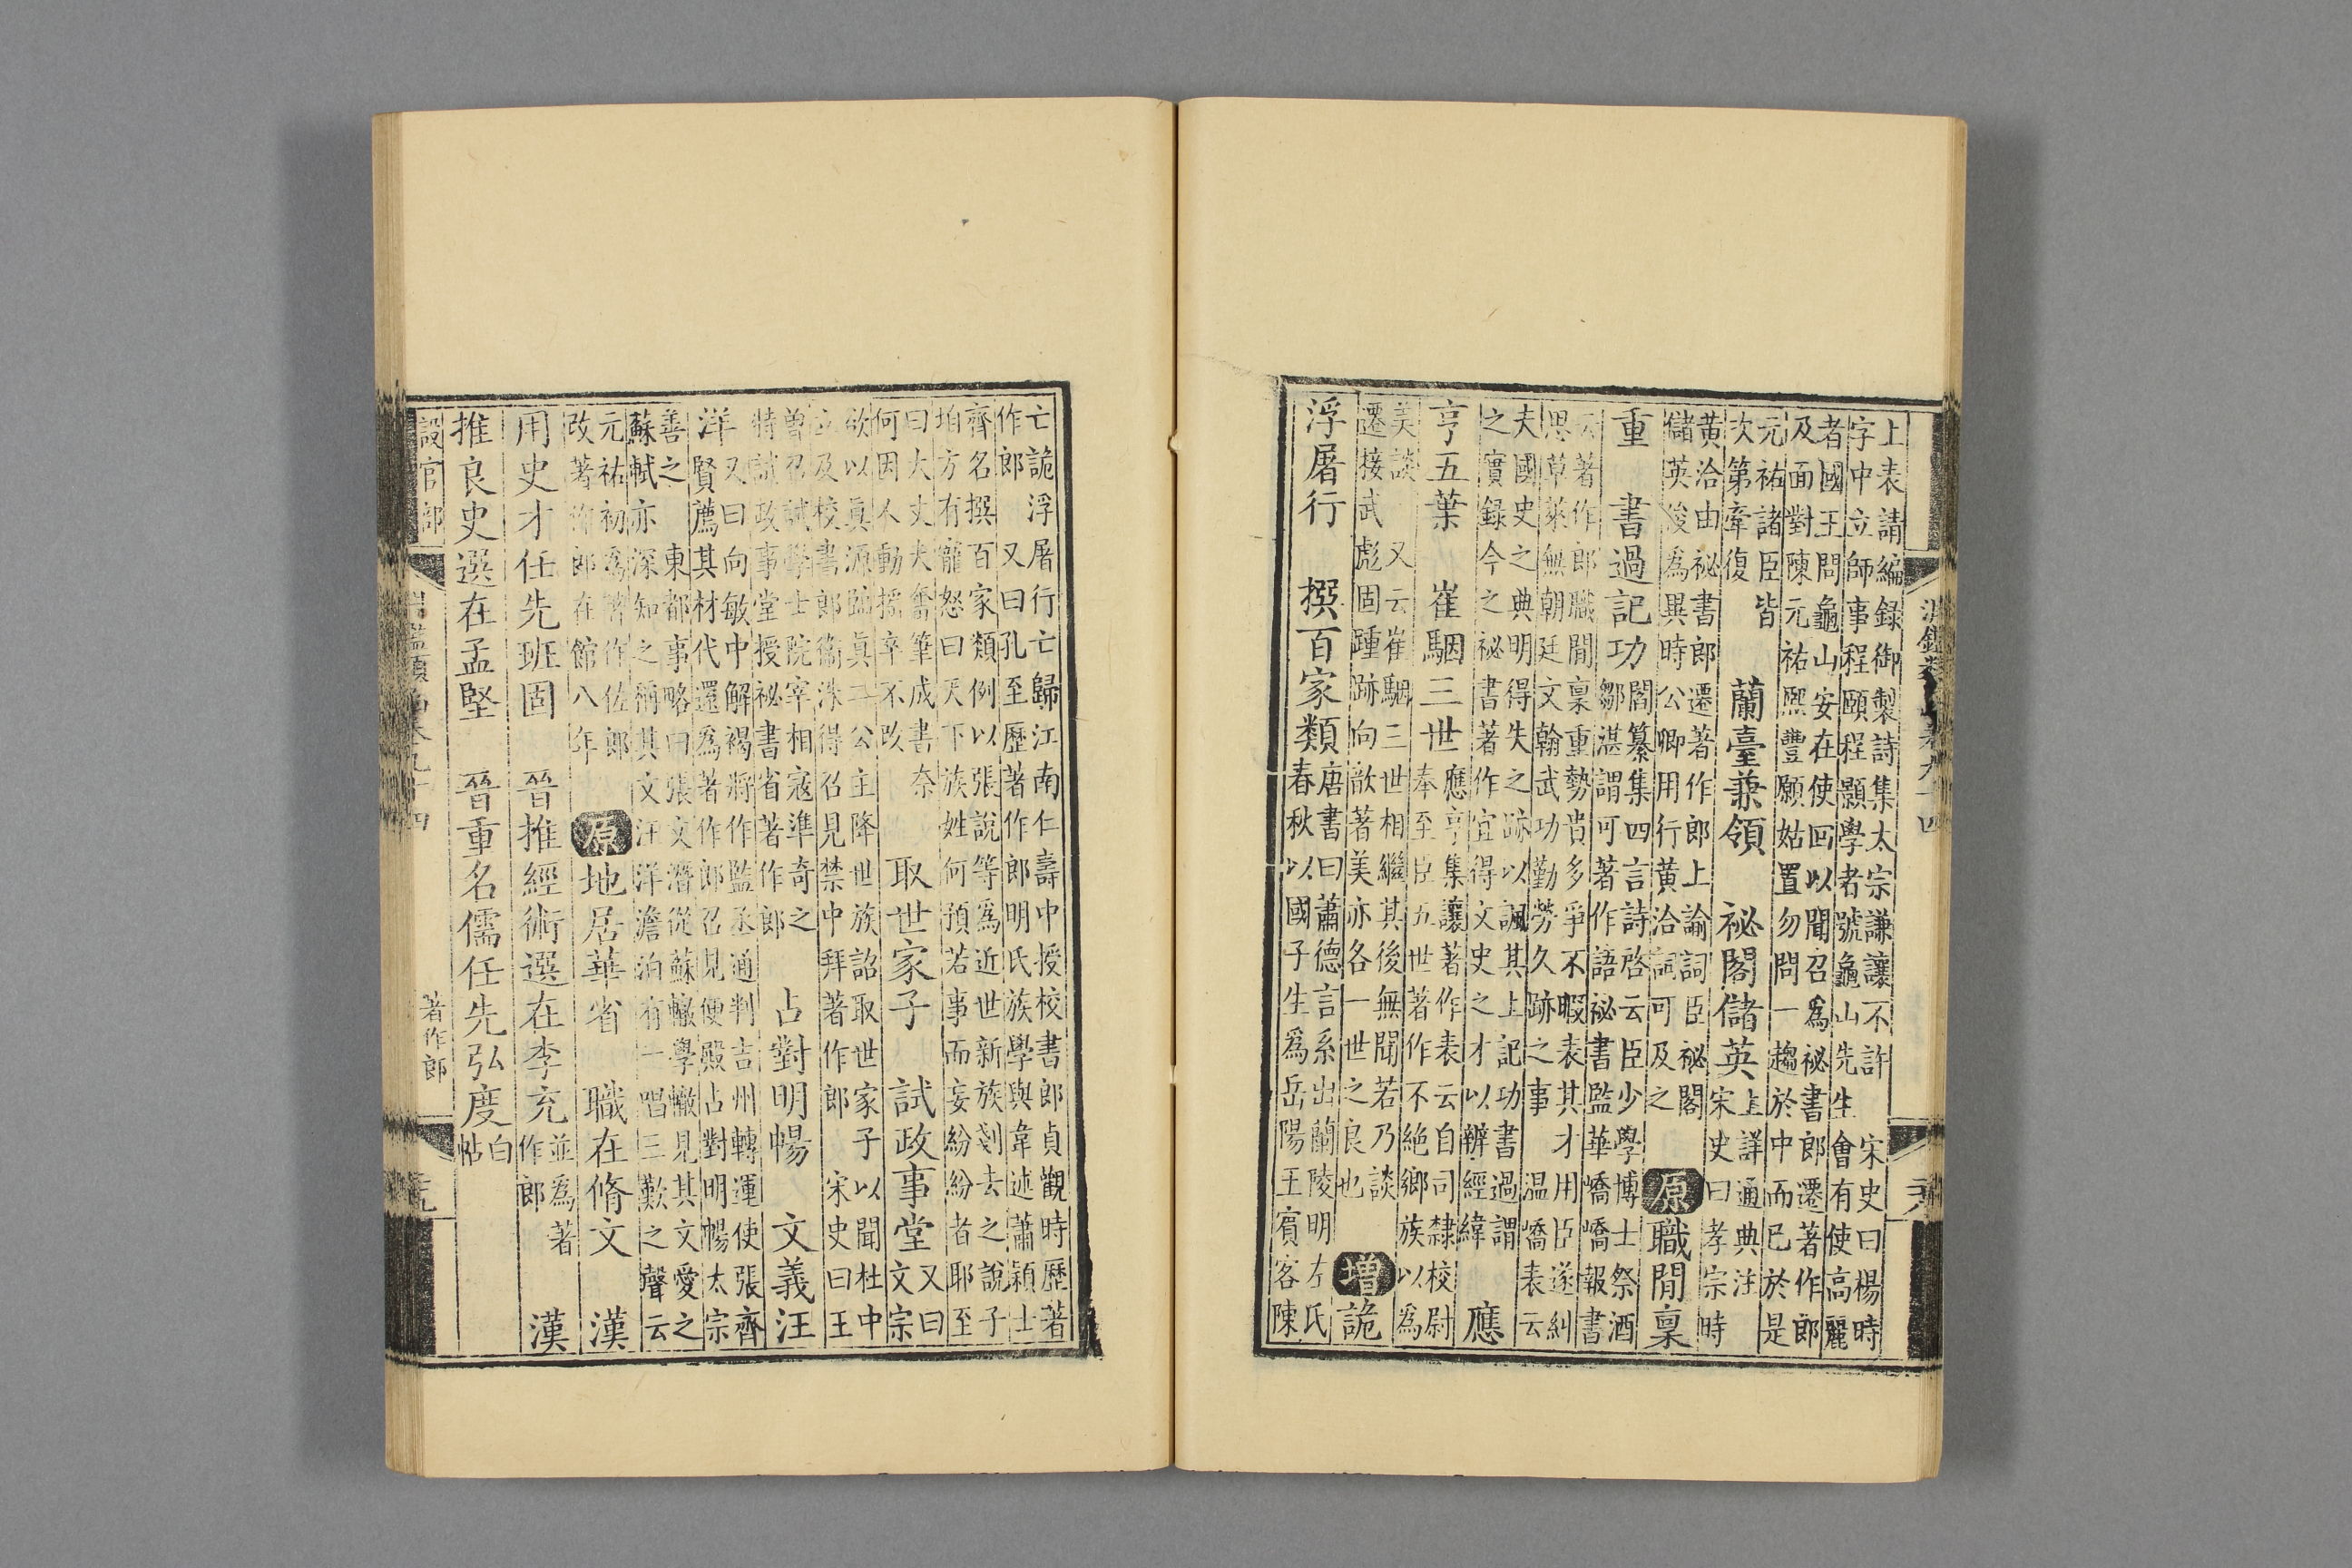 淵鑑類函卷九十四
上表請編錄御製詩集太宗謙讓不許　宋史曰楊時
字中立師事程頤程顥學者號龜山先生會有使高麗
者國王問龜山安在使回以聞召爲祕書郎遷著作郎
及面對陳元祐熙豐願姑置勿問一趨於中而已於是
元祐諸臣皆
次第牽復
蘭臺兼領　祕閣儲英
上詳通典注
宋史曰孝宗時
黃洽由祕書郎遷著作郎上諭詞臣祕閣
儲英俊爲異時公卿用行黃洽詞可及之
原職閒稟
重　書過記功
閻纂集四言詩啓云臣少學博士祭酒
鄒湛謂可著作語祕書監華嶠嶠報書
云著作郎職閒稟重勢貴多爭不暇表其才用臣遂糾
思草萊無朝廷文翰武功勤勞久跡之事　温嶠表云
夫國史之典明得失之跡以諷其上記功書過謂
之實錄今之祕書著作宜得文史之才以辦經緯
應
亨五葉　崔駰三世
應亨集讓著作表云自司隸校尉
奉至臣五世著作不絕鄉族以爲
美談　又云崔駰三世相繼其後無聞若乃談
遷接武彪固踵跡向歆著美亦各一世之良也
增詭
浮屠行　撰百家類
唐書曰蕭德言系出蘭陵明左氏
春秋以國子生爲岳陽王賓客陳
亡詭浮屠行亡歸江南仁壽中授校書郎貞觀時歷著
作郎　又曰孔至歷著作郎明氏族學與韋述蕭穎士
齊名撰百家類例以張說等爲近世新族剟去之說子
垍方有寵怒曰天下族姓何預若事而妄紛紛者耶至
曰大丈夫奮筆成書奈
何因人動搖卒不改
取世家子　試政事堂
又曰
文宗
欲以真源臨真二公主降世族詔取世家子以聞杜中
立及校書郎衞洙得召見禁中拜著作郎　宋史曰王
曾召試學士院宰相寇準奇之
特試政事堂授祕書省著作郎
占對明暢　文義汪
洋
又曰向敏中解褐將作監丞通判吉州轉運使張齊
賢薦其材代還爲著作郎召見便殿占對明暢太宗
善之　東都事略曰張文潛從蘇轍學轍見其文愛之
蘇軾亦深知之稱其文汪洋澹泊有一唱三歎之聲云
元祐初爲著作佐郎
改著作郎在館八年
原地居華省　職在脩文　漢
用史才任先班固　晉推經術選在李充
並爲著
作郎
漢
推良史選在孟堅　晉重名儒任先弘度
白
帖
設官部
淵鑑類函卷九十四
著作郎